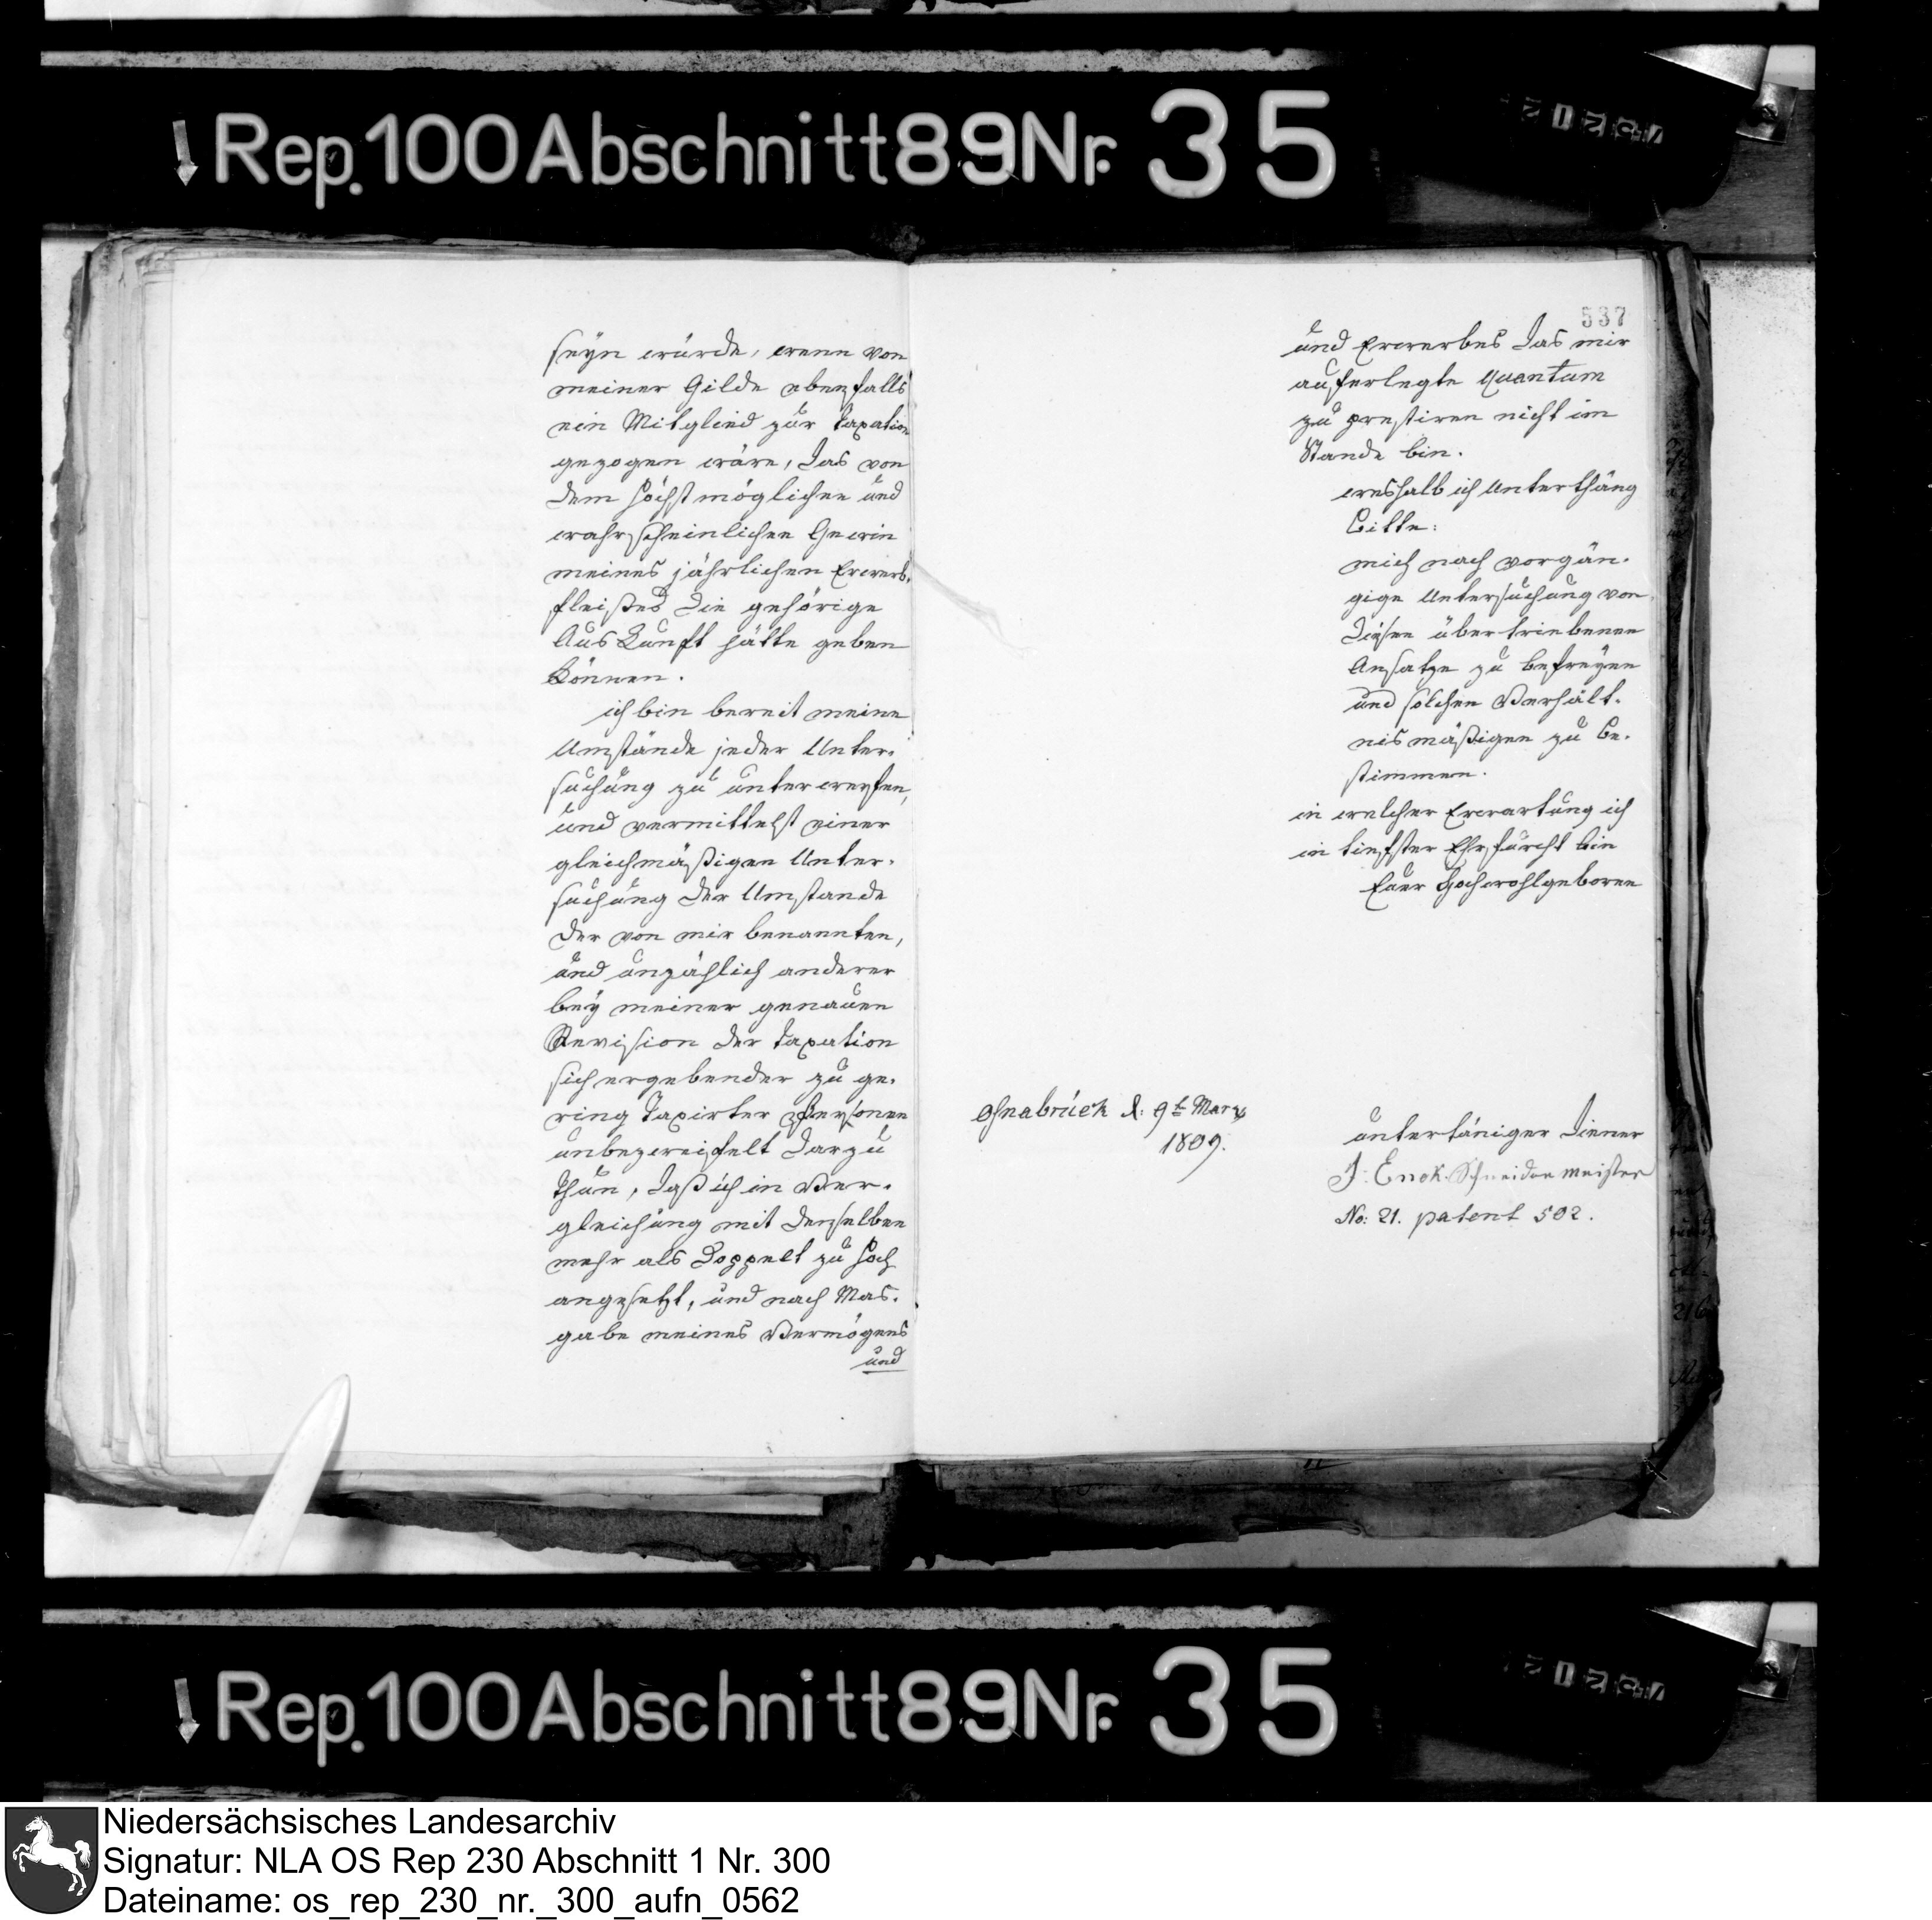 Rep. 100 Abschnitt 89 Nr. 35
seyn würde, wenn von
meiner Gilde ebenfalls
ein Mitglied zur taxation
gezogen wäre, das von
dem höchst möglichen und
wahrscheinlichen Gewin
meines jährlichen Erwerb-
fleißes die gehörige
Auskunft hätte geben
können.
ich bin bereit meine
Umstände jeder Unter-
suchung zu unterwerfen,
und vermittelst einer
gleichmäßigen Unter-
suchung der Umstande
der von mir benannten,
und unzählich anderer
bey meiner genauen
Revision der taxation
sich ergebender zu ge-
ring taxirter Personen
unbezweifelt darzu
thun, daß ich in Ver-
gleichung mit denselben
mehr als doppelt zu hoch
angesetzt, und nach Mas-
gabe meines Vermögens
und
537
und Erwerbes das mir
auferlegte Quantum
zu prestiren nicht im
Stande bin.
weshalb ich unterthänig
bitte:
mich nach vorgän-
gige Untersuchung von
diesen übertriebenen
Ansatze zu befreyen
und solchen Verhält-
nismäßigen zu be-
stimmen.
in welcher Erwartung ich
in tiefster Ehrfurcht bin
Euer Hochwohlgeboren
Osnabrück d: 9t März
1809.
untertäniger Diener
J: Enok Schneider meister
No: 21. patent 502.
Rep. 100 Abschnitt 89 Nr. 35
Niedersächsisches Landesarchiv
Signatur: NLA OS Rep 230 Abschnitt 1 Nr. 300
Dateiname: os_rep_230_nr._300_aufn_0562